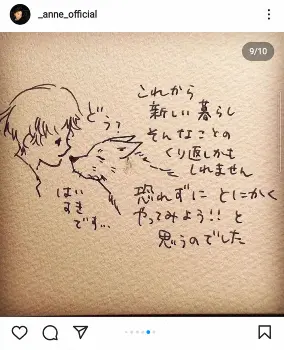 _anne_official
9/10
これから
新しい暮らし
そんなことの
くり返しかも
しれません
恐れずに とにかく
やってみよう!! と
思うのでした
どう?
はい
すき
です...